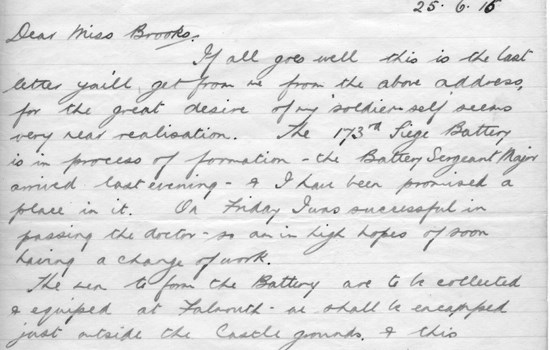 25.6.15
Dear Miss Brooks.
If all goes well this is the last
letter you'll get from me from the above address,
for the great desire of my 'soldier-self' seems
very near realisation. The 173rd Siege Battery
is in process of formation - the Battery Sergeant Major
arrived last evening - & I have been promised a
place in it. On Friday I was successful in
passing the doctor - so am in high hopes of soon
having a change of work.
The men to form the Battery are to be collected
& equiped at Falmouth - we shall be encamped
just outside the Castle grounds. & this